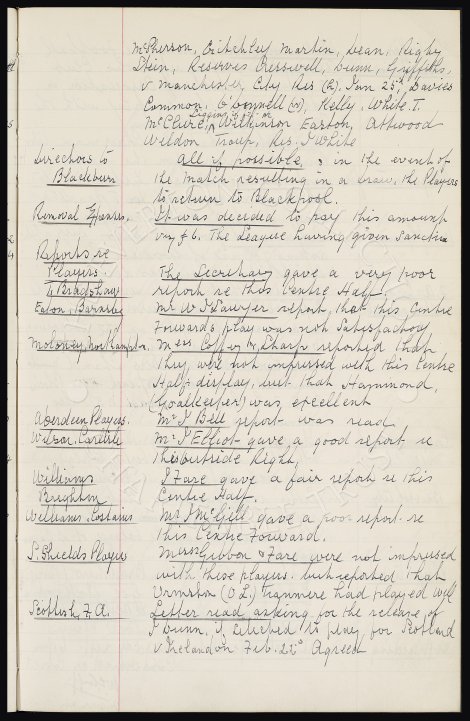 McPherson, Critchley Martin, Dean, Rigby
Stein, Reserves Cresswell, Dunn, Griffiths,
v Manchester, City Res (A), Jan 25th, Davies
Common, O'Donnell (W), Kelly, White. T.
McClure, Wilkinson Easton, Attwood
Weldon Troup, Res. J White
Directors to
Blackburn
all if possible, & in the event of
the match resulting in a draw, the Players
to return to Blackpool.
Removal Expenses.
It was decided to pay this amount
viz £6. The League having given sanction
Reports re
Players.
Bradshaw
The Secretary gave a very poor
report re this Centre Half
Eaton, Barnsley
Mr W J Sawyer report, that this Centre
Forwards play was not satisfactory
Moloney, Northampton.
Mess Cuff & Sharp reported that
they were not impressed with this Centre
Half display, but that Hammond,
(Goalkeeper) was excellent
Aberdeen Players.
Mr J Bell report was read
Wilson. Carlisle
Mr J Elliot gave a good report re
this Outside Right,
Williams
Brighton
J Fare gave a fair report re this
Centre Half.
Williams, Costains
Mr J McGill gave a poor report re
this Centre Forward.
S. Shields Player
Messrs Gibbon & Fare were not impressed
with these players. but reported that
Urmston (O.L.) Tranmere had played well
Scottish. F. A.
Letter read, asking for the release of
J Dunn, if selected to play, for Scotland
v Ireland on Feb. 22nd Agreed